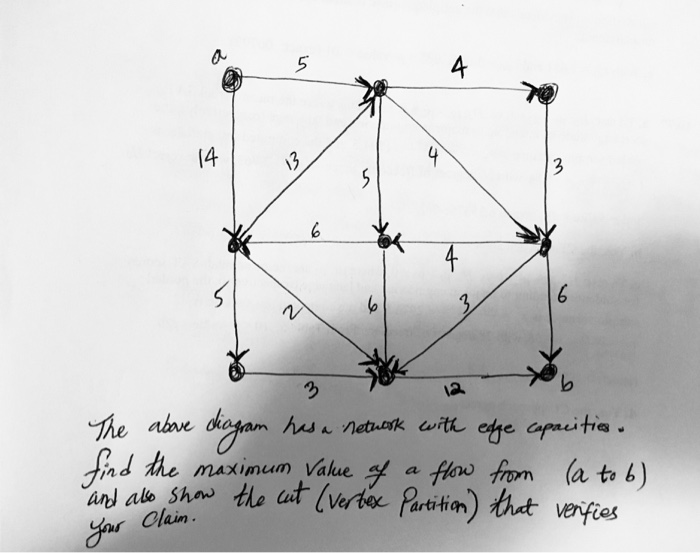 a 5 4
14 13 5 4 3
6 4
5 2 6 3 6
3 12 b
The above diagram has a network with edge capacities.
find the maximum value of a flow from (a to b)
and also show the cut (vertex Partition) that verifies
your Claim.